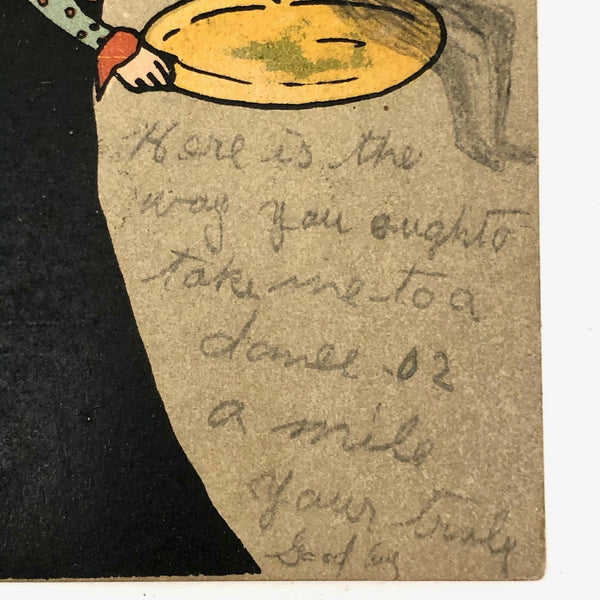 Here is the
way you ought to
take me to a
dance .02
a mile
your truly
Good by